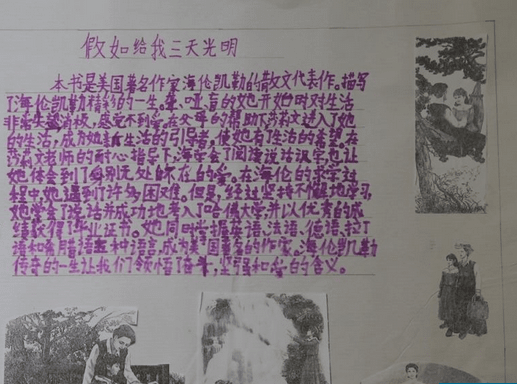 假如给我三天光明
本书是美国著名作家海伦凯勒的散文代表作。描写
了海伦凯勒精彩的一生。聋、哑、盲的她开始时对生活
非常失望消极,感受不到爱,在父母的帮助下沙利文进入了她
的生活,成为她新生活的引导者,使她有了生活的希望。在
沙利文老师的耐心指导下,海伦会了阅读说话汉字也让
她体会到了每刻无处不在的爱。在海伦的求学过
程中她遇到了许多困难。但是,经过坚持不懈地学习,
她学会了说话并成功地考入了哈佛大学,并以优秀的成
绩获得了毕业证书。她同时掌握英语、法语、德语、拉丁
语和希腊语五种语言,成为美国著名的作家。海伦凯勒
传奇的一生让我们领悟了奋斗,坚强和爱的含义。